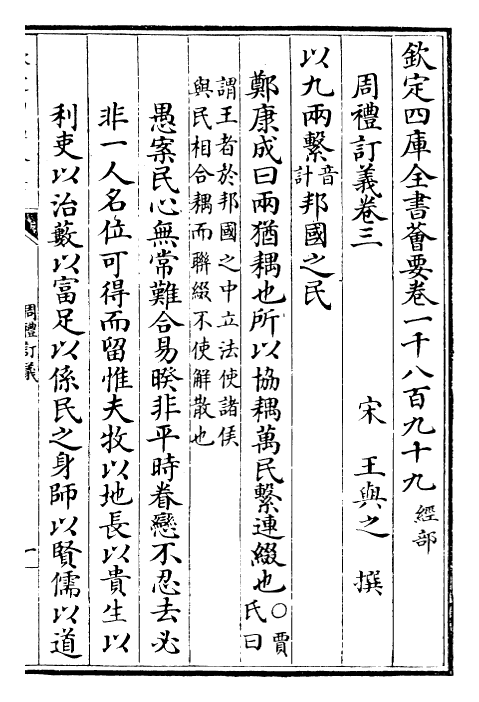 欽定四庫全書薈要卷一千八百九十九 經部
周禮訂義卷三
宋 王與之 撰
以九兩繫音計邦國之民
鄭康成曰兩猶耦也所以協耦萬民繫連綴也○賈氏曰
謂王者於邦國之中立法使諸侯
與民相合耦而聯綴不使解散也
愚案民心無常難合易睽非平時眷戀不忍去必
非一人名位可得而留惟夫牧以地長以貴生以
利吏以治藪以富足以係民之身師以賢儒以道
周禮訂義
一